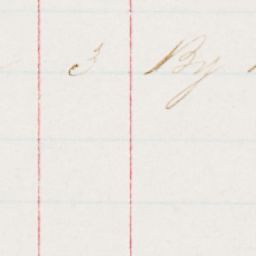 3 By